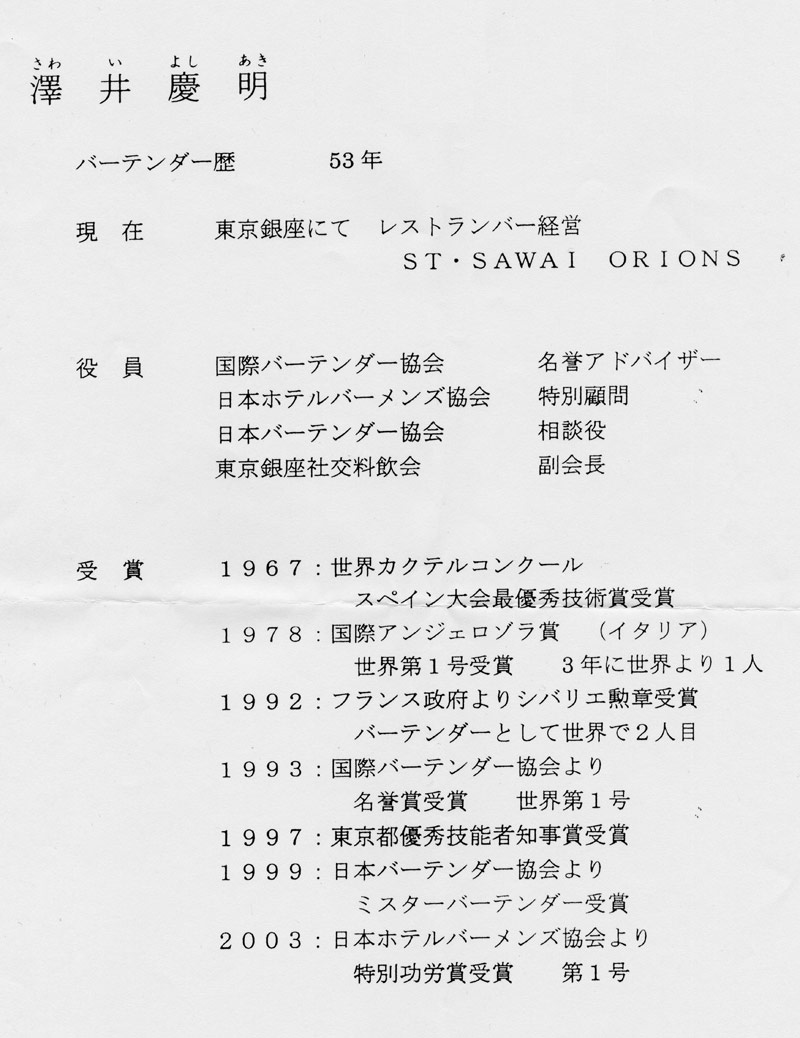 さわ い よし あき
澤 井 慶 明
バーテンダー歴 53年
現 在 東京銀座にて レストランバー経営
ＳＴ・ＳＡＷＡＩ ＯＲＩＯＮＳ
役 員 国際バーテンダー協会 名誉アドバイザー
日本ホテルバーメンズ協会 特別顧問
日本バーテンダー協会 相談役
東京銀座社交料飲会 副会長
受 賞 １９６７：世界カクテルコンクール
スペイン大会最優秀技術賞受賞
１９７８：国際アンジェロゾラ賞 （イタリア）
世界第１号受賞 ３年に世界より１人
１９９２：フランス政府よりシバリエ勲章受賞
バーテンダーとして世界で２人目
１９９３：国際バーテンダー協会より
名誉賞受賞 世界第１号
１９９７：東京都優秀技能者知事賞受賞
１９９９：日本バーテンダー協会より
ミスターバーテンダー受賞
２００３：日本ホテルバーメンズ協会より
特別功労賞受賞 第１号